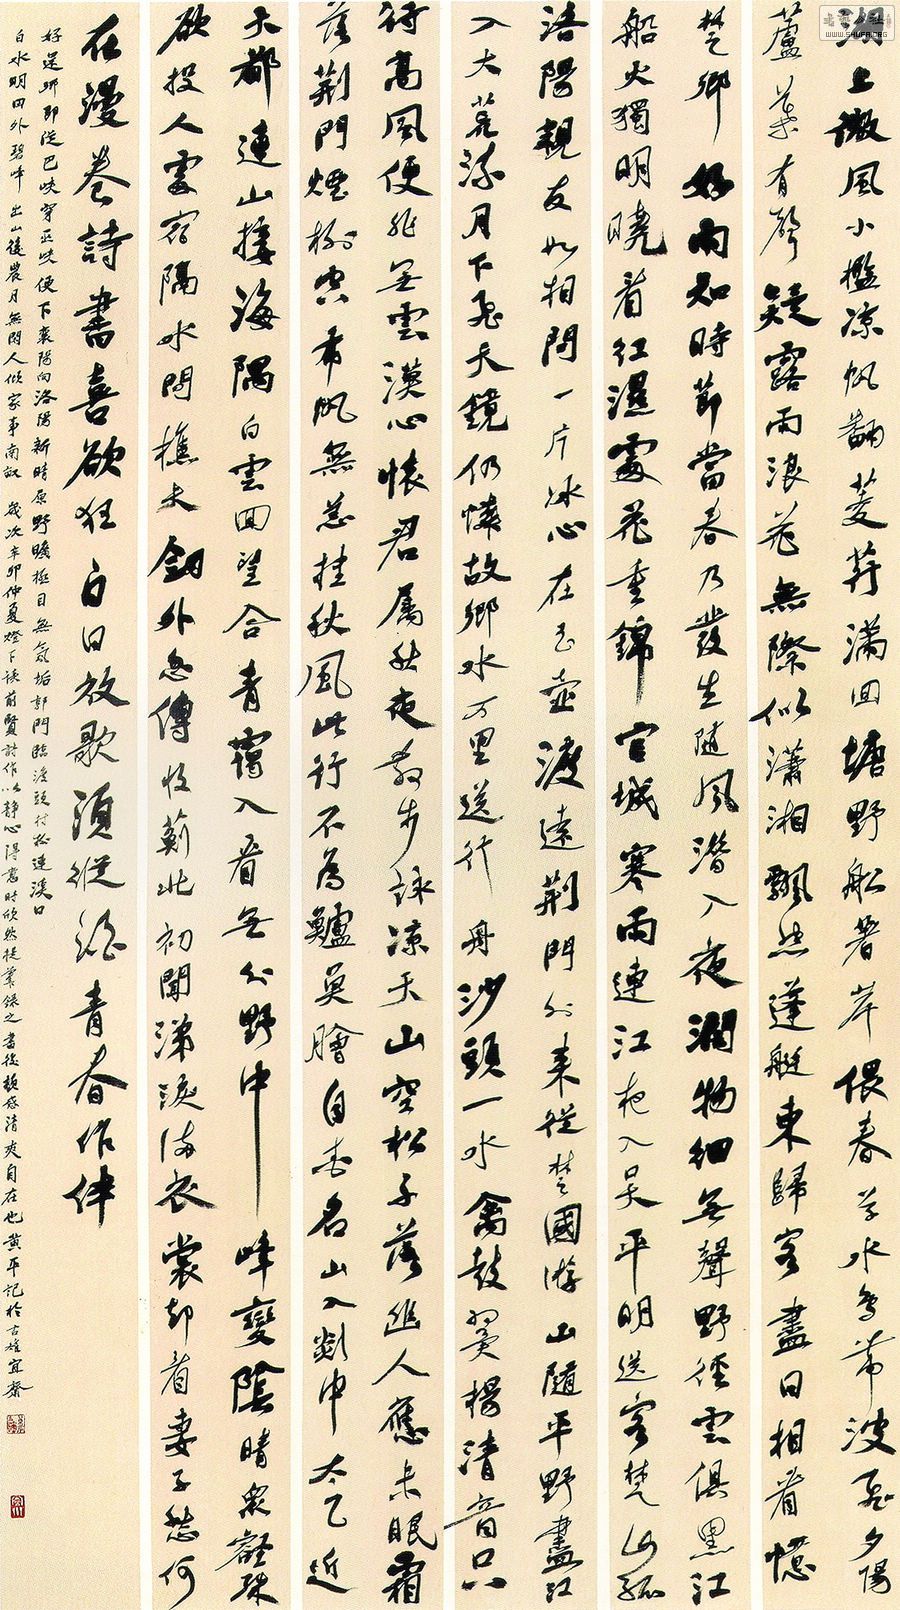 湖上微風小檻涼帆翻菱荇滿回塘野船著岸偎春草水鳥帶波飛夕陽
蘆葉有聲疑露雨浪花無際似瀟湘飄然蓬艇東歸客盡日相看憶
楚鄉好雨知時節當春乃發生隨風潛入夜潤物細無聲野徑雲俱黑江
船火獨明曉看紅濕處花重錦官城寒雨連江夜入吳平明送客楚山孤
洛陽親友如相問一片冰心在玉壺渡遠荊門外來從楚國游山隨平野盡江
入大荒流月下飛天鏡仍憐故鄉水万里送行舟沙頭一水禽鼓翼揚清音只
待高風便非無雲漢心懷君屬秋夜散步詠涼天山空松子落幽人應未眠霜
落荊門煙樹空布帆無恙挂秋風此行不為鱸魚膾自愛名山入剡中太乙近
天都連山接海隅白雲回望合青靄入看無分野中峰變陰晴眾壑殊
欲投人處宿隔水問樵夫劍外忽傳收薊北初聞涕淚滿衣裳却看妻子愁何
在漫卷詩書喜欲狂白日放歌須縱酒青春作伴
好還鄉即從巴峽穿巫峽便下襄陽向洛陽新晴原野曠極目無氛垢郭門臨渡頭村樹連溪口
白水明田外碧峰出山後農月無閑人傾家事南畝 歲次辛卯仲夏燈下讀前賢詩作以靜心得意時欣然提筆錄之書後頗感清爽自在也黃平記於古雄宜齋
WWW.SHUFA.ORG